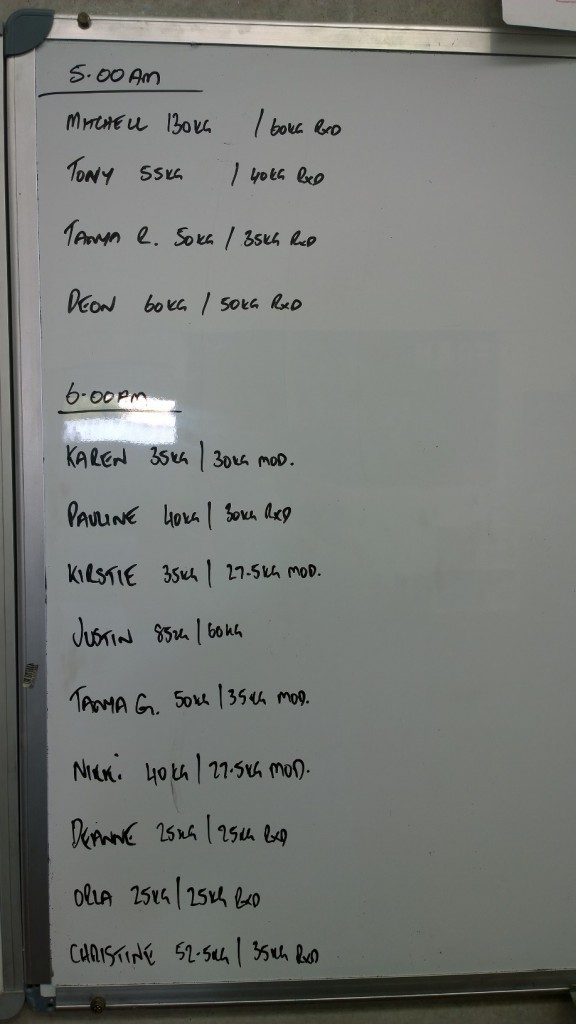 5.00AM
MITCHELL 130KG / 60KG RXD
TONY 55KG / 40KG RXD
TANYA R. 50KG / 35KG RXD
DEON 60KG / 50KG RXD
6.00PM
KAREN 35KG | 30KG MOD.
PAULINE 40KG | 30KG RXD
KIRSTIE 35KG | 27.5KG MOD.
JUSTIN 85KG | 60KG
TANYA G. 50KG | 35KG MOD.
NIKKI. 40KG | 27.5KG MOD.
DEANNE 25KG | 25KG RXD
ORLA 25KG | 25KG RXD
CHRISTINE 52.5KG | 35KG RXD